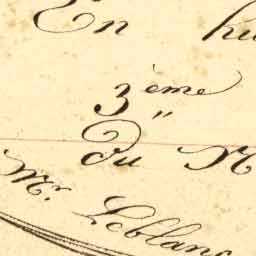 En hu
3ème
"
Du N
Mr. Leblanc